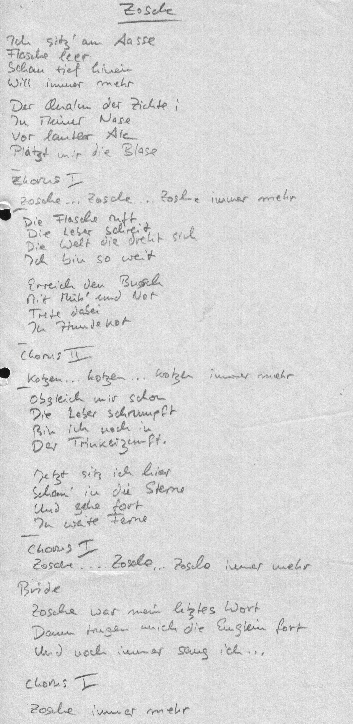 Zosche
Ich sitz' am Aasse
Flasche leer
Schau tief hinein
Will immer mehr
Der Qualm der Zichte
In meiner Nase
Vor lauter Ale
Platzt mir die Blase
Chorus I
Zosche... Zosche... Zosche immer mehr
Die Flasche ruft
Die Leber schreit
Die Welt die dreht sich
Ich bin so weit
Erreich den Busch
Mit Müh' und Not
Trete dabei
In Hundekot
Chorus II
Kotzen... kotzen... kotzen immer mehr
Obgleich mir schon
Die Leber schrumpft
Bin ich noch in
Der Trinkerzunft.
Jetzt sitz ich hier
Schau' in die Sterne
Und gehe fort
In weite Ferne
Chorus I
Zosche... Zosche... Zosche immer mehr
Bride
Zosche war mein letztes Wort
Dann trugen mich die Englein fort
Und noch immer sang ich...
Chorus I
Zosche immer mehr